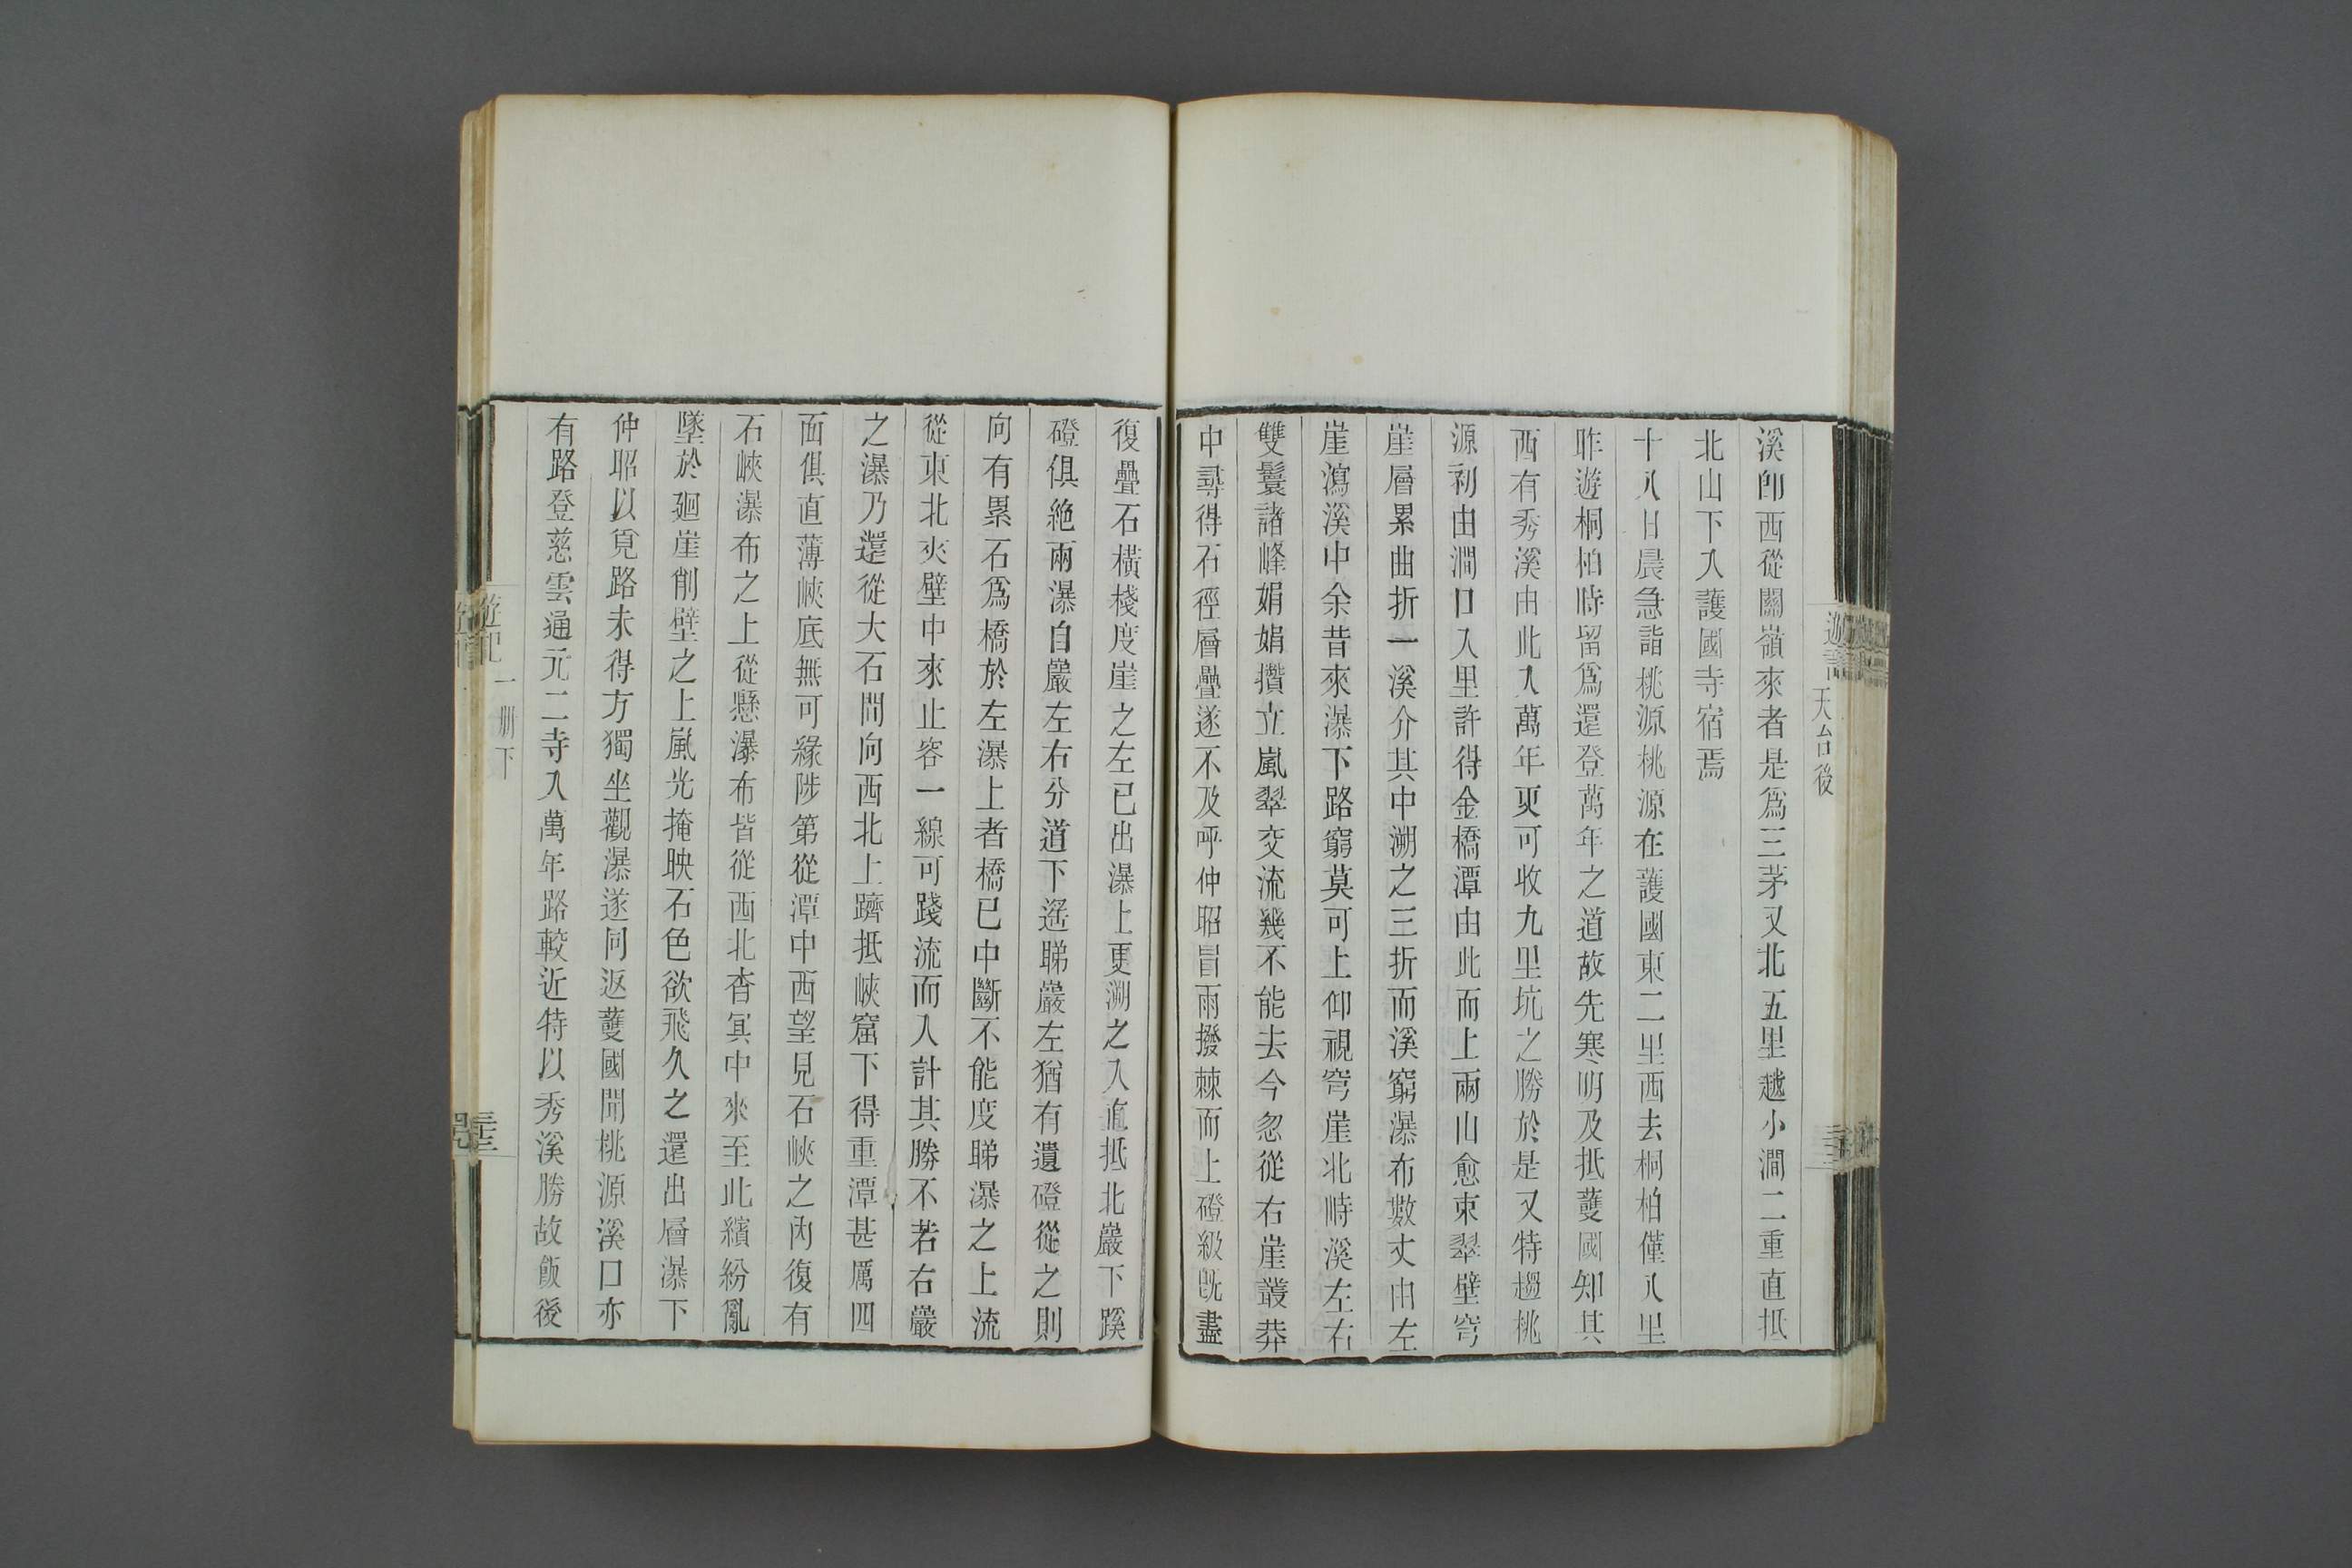 天台後
溪卽西從關嶺來者是爲三茅又北五里越小澗二重直抵
北山下入護國寺宿焉
十八日晨急詣桃源桃源在護國東二里西去桐柏僅八里
昨遊桐柏時留爲還登萬年之道故先寒明及抵護國知其
西有秀溪由此入萬年更可收九里坑之勝於是又特趨桃
源初由澗口入里許得金橋潭由此而上兩山愈束翠壁穹
崖層累曲折一溪介其中溯之三折而溪窮瀑布數丈由左
崖瀉溪中余昔來瀑下路窮莫可上仰視穹崖北峙溪左右
雙鬟諸峰娟娟攢立嵐翠交流幾不能去今忽從右崖叢莽
中尋得石徑層疊遂不及呼仲昭冒雨撥棘而上磴級旣盡
復疊石橫棧度崖之左已出瀑上更溯之入直抵北巖下蹊
磴俱絶兩瀑自巖左右分道下遙睇巖左猶有遺磴從之則
向有累石爲橋於左瀑上者橋已中斷不能度睇瀑之上流
從東北夾壁中來止容一線可踐流而入計其勝不若右巖
之瀑乃還從大石間向西北上躋抵峽窟下得重潭甚厲四
面俱直薄峽底無可緣陟第從潭中西望見石峽之內復有
石峽瀑布之上從懸瀑布皆從西北杳冥中來至此繽紛亂
墜於廻崖削壁之上嵐光掩映石色欲飛久之還出層瀑下
仲昭以覓路未得方獨坐觀瀑遂同返護國聞桃源溪口亦
有路登慈雲通元二寺入萬年路較近特以秀溪勝故飯後
遊記
一册下